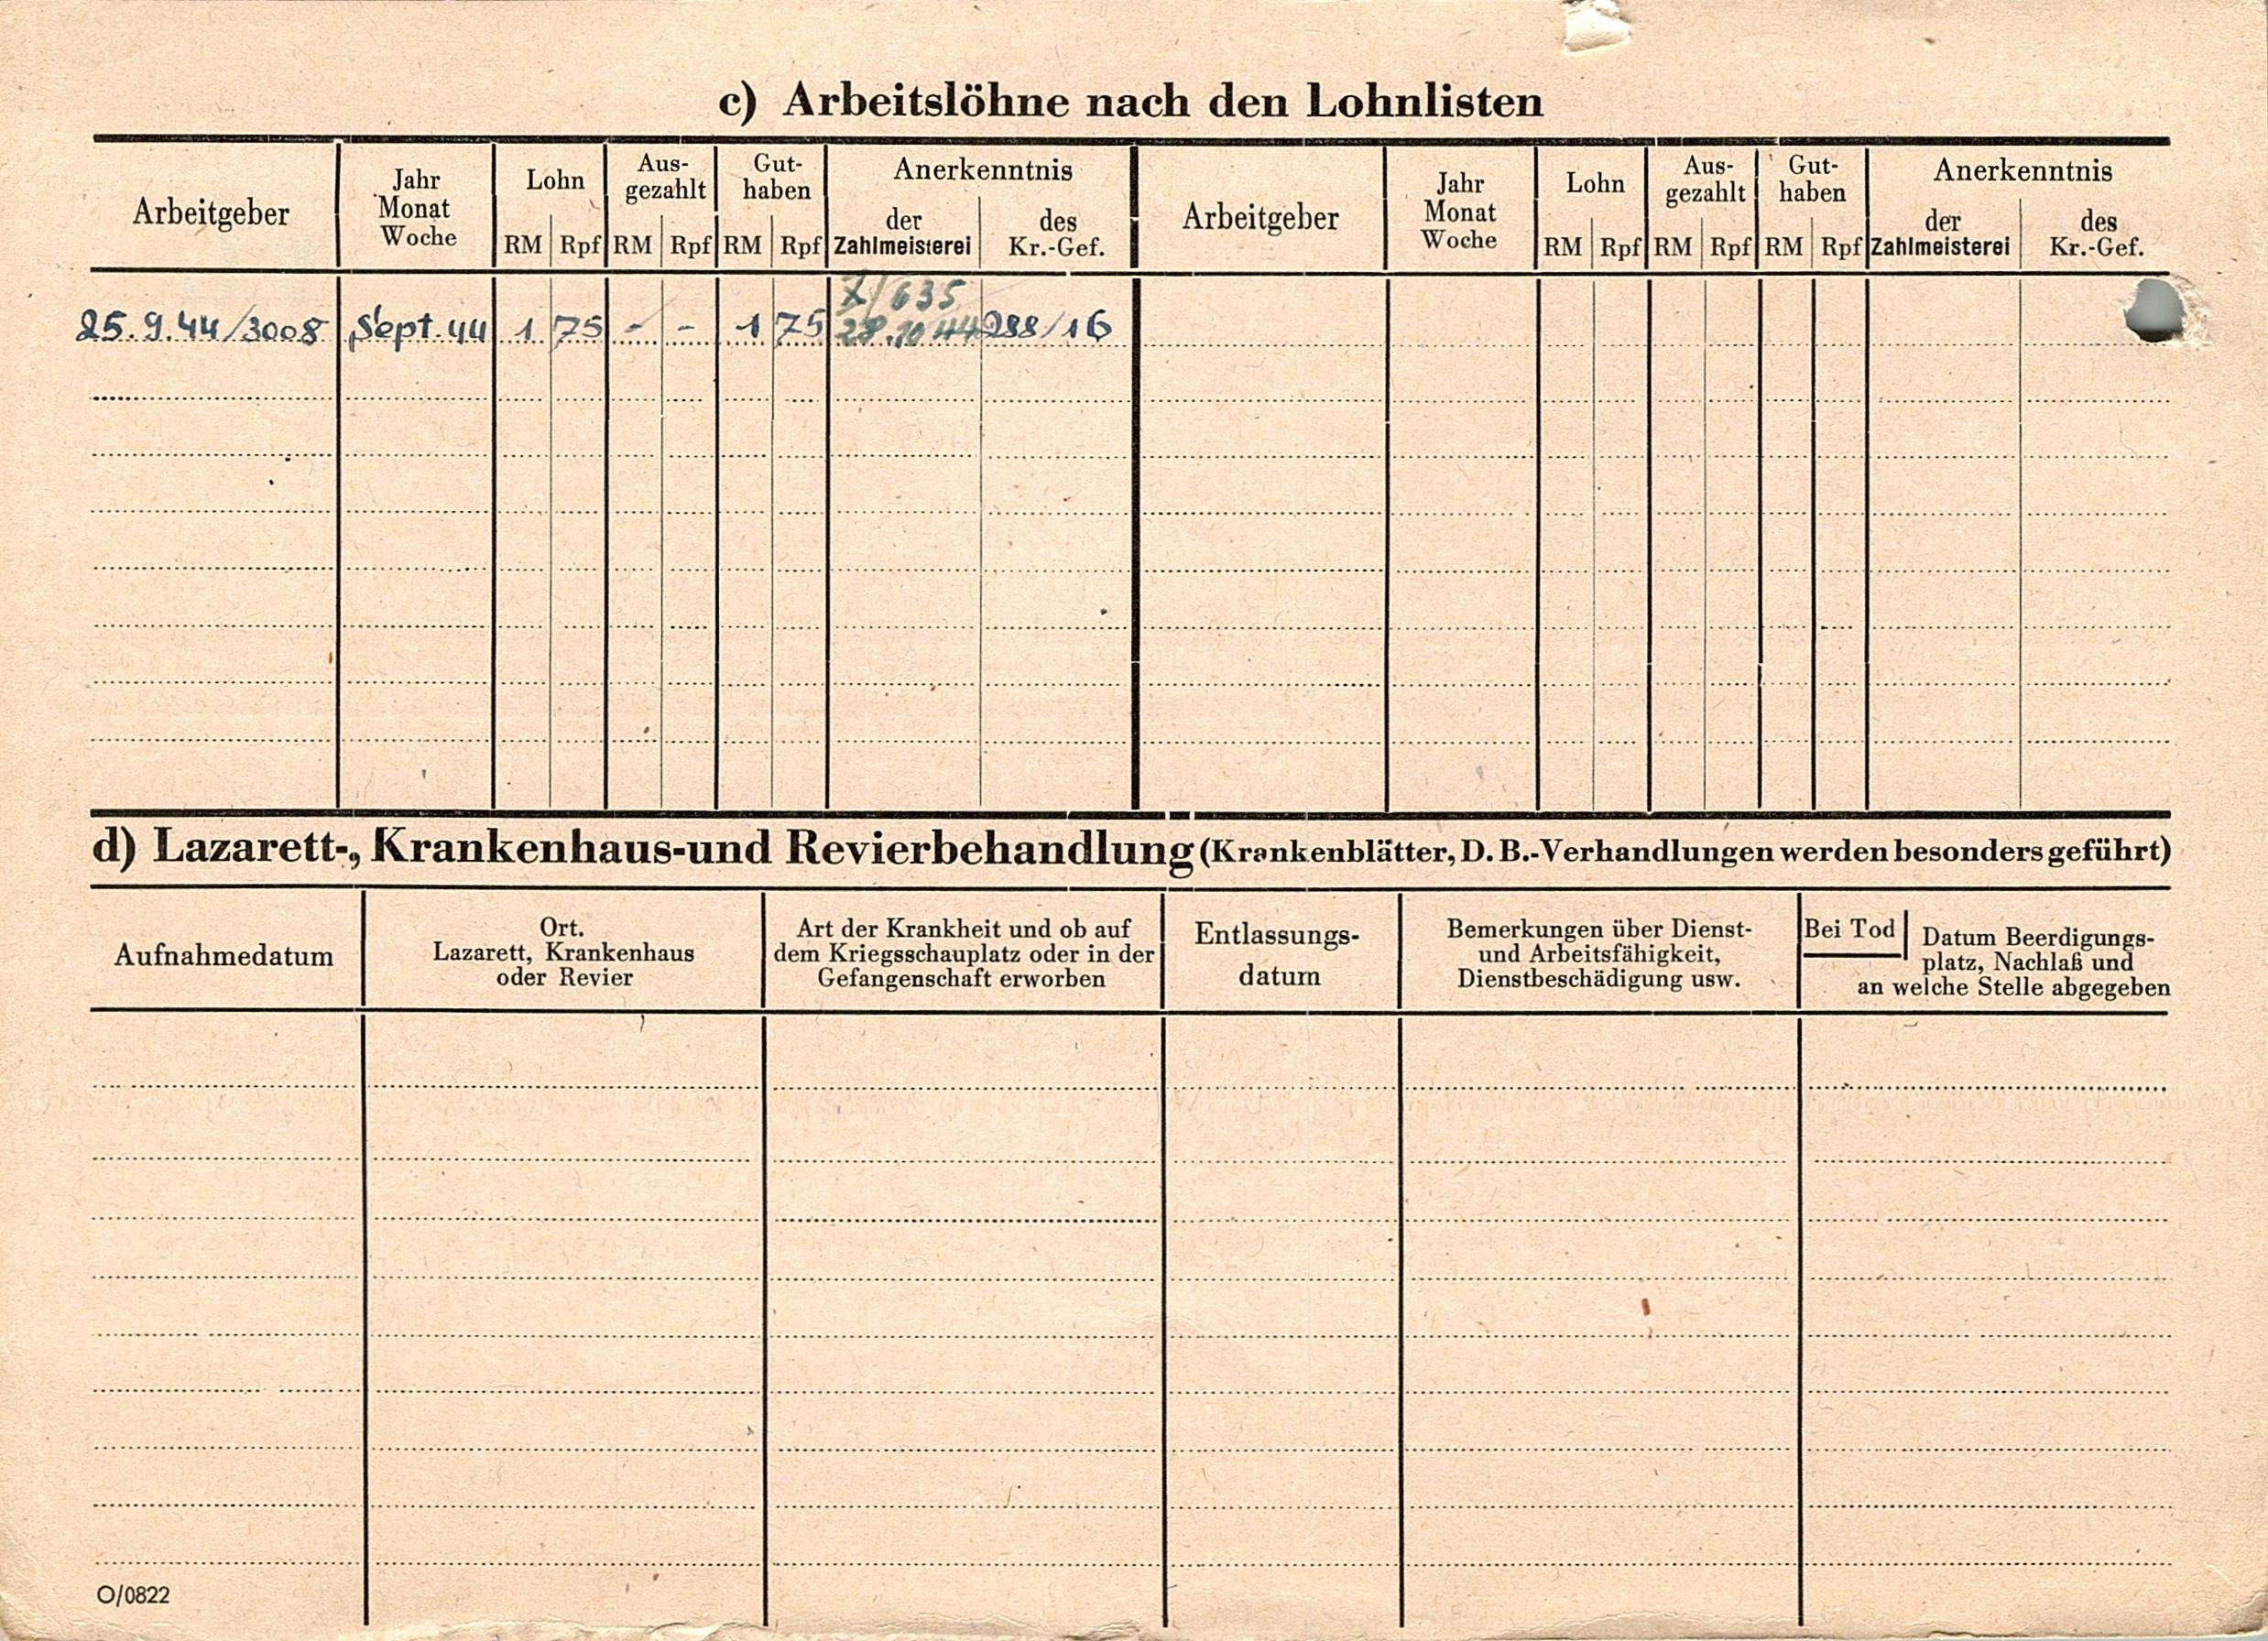 c) Arbeitslöhne nach den Lohnlisten
Arbeitgeber Jahr Monat Woche Lohn RM Rpf Aus-gezahlt RM Rpf Gut-haben RM Rpf Anerkenntnis der Zahlmeisterei des Kr.-Gef. Arbeitgeber Jahr Monat Woche Lohn RM Rpf Aus-gezahlt RM Rpf Gut-haben RM Rpf Anerkenntnis der Zahlmeisterei des Kr.-Gef.
X/635
25.9.44/3008 Sept.44 1 75 - - 1 75 28.10 44 288/16
d) Lazarett-, Krankenhaus-und Revierbehandlung (Krankenblätter, D.B.-Verhandlungen werden besonders geführt)
Aufnahmedatum
Ort.
Lazarett, Krankenhaus
oder Revier
Art der Krankheit und ob auf
dem Kriegsschauplatz oder in der
Gefangenschaft erworben
Entlassungs-
datum
Bemerkungen über Dienst-
und Arbeitsfähigkeit,
Dienstbeschädigung usw.
Bei Tod
Datum Beerdigungs-
platz, Nachlaß und
an welche Stelle abgegeben
O/0822